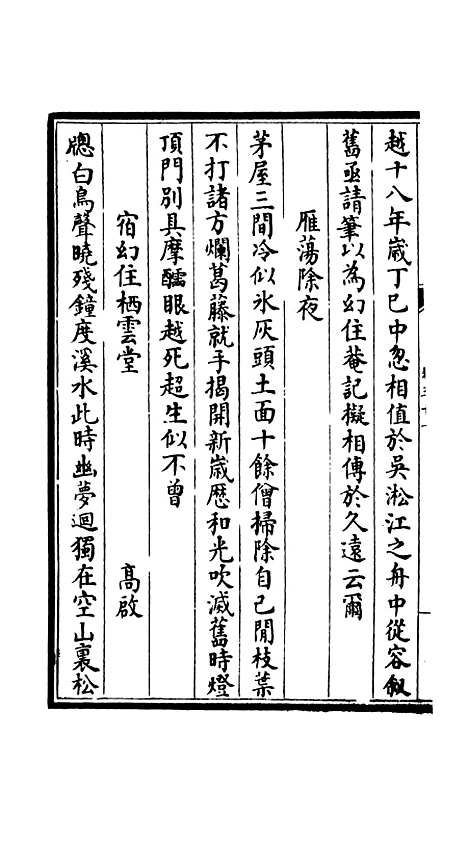 越十八年嵗丁巳中忽相值於吳淞江之舟中從容叙
舊亟請筆以為幻住菴記擬相傳於久遠云爾
雁蕩除夜
茅屋三間冷似氷灰頭土面十餘僧掃除自己閒枝葉
不打諸方爛葛藤就手揭開新嵗厯和光吹滅舊時燈
頂門別具摩醯眼越死超生似不曾
宿幻住栖雲堂　高啟
牕白鳥聲曉殘鐘度溪水此時幽夢迴獨在空山裏松